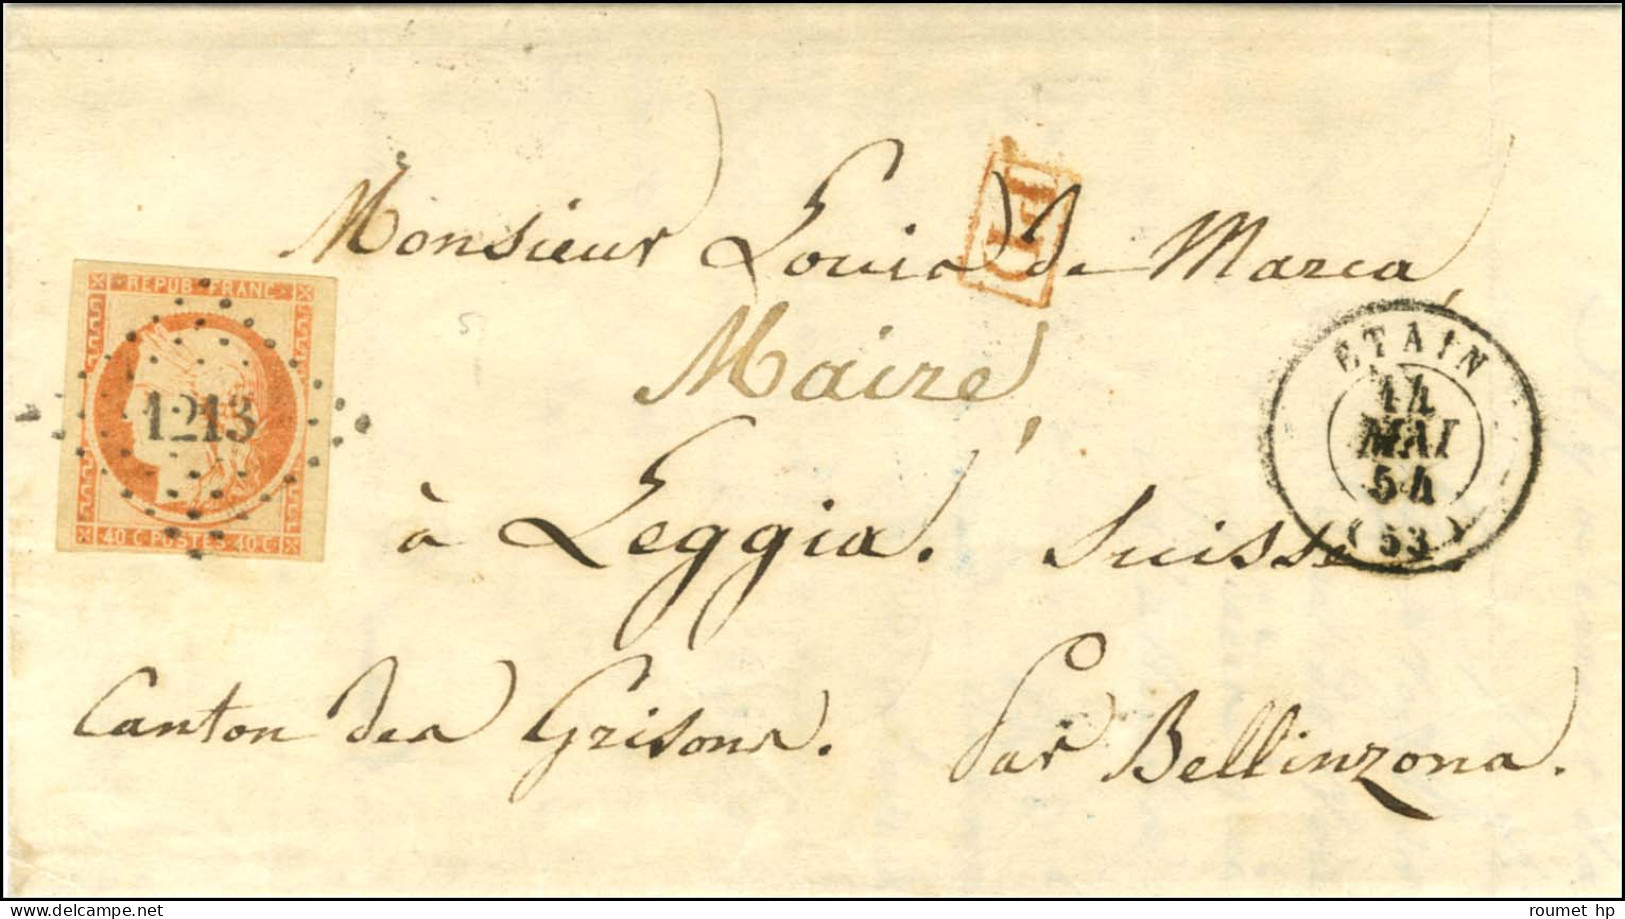 Monsieur Louis de Marca,
PD
REPUB. FRANC.
1213
40 C POSTES 40 C
Maire,
ETAIN
14
MAI
54
(53)
à Leggia. Suisse
Canton des Grisons. Par Bellinzona.
delcampe.net
roumet hp